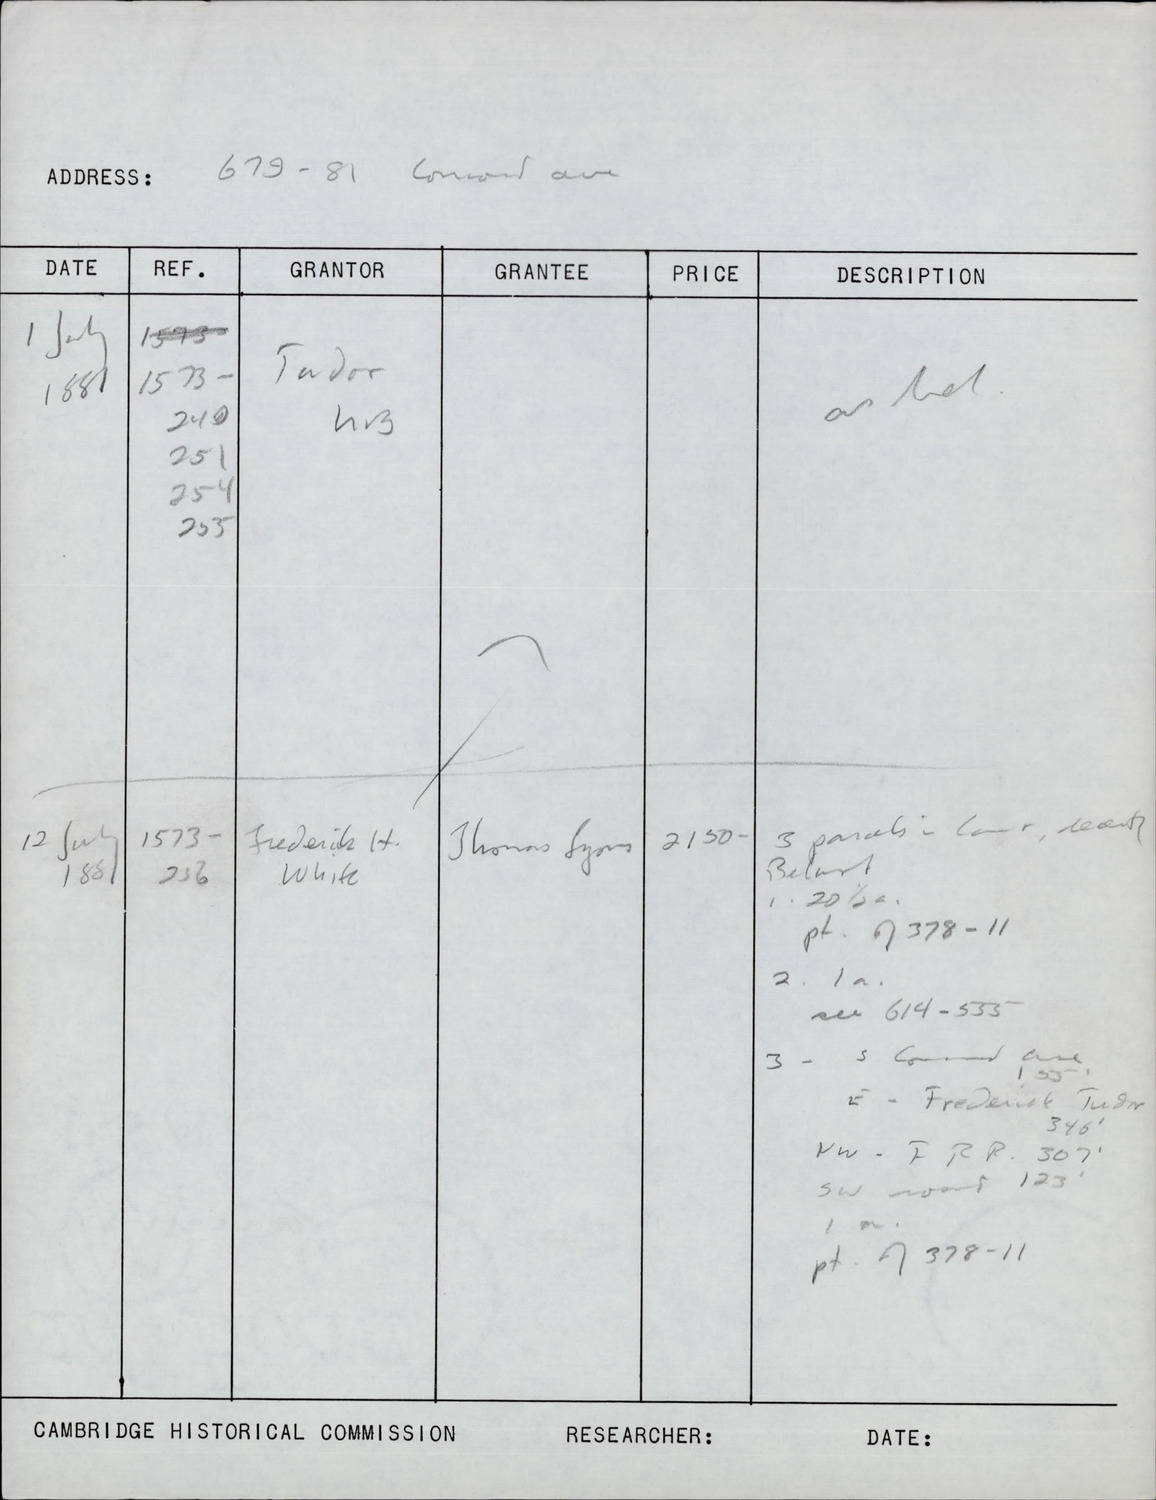 ADDRESS: 679-81 Concord ave
DATE REF. GRANTOR GRANTEE PRICE DESCRIPTION
1 July
1881
1573-
1573-
240
251
254
255
Tudor
12 July
1881
1573-
256
Frederick H.
White
Thomas Lyons
2150-
3 parcels in
Belmont
1. 20½a.
pt. of 378-11
2. 1a.
see 614-535
3 - S Concord ave
155'
E - Frederick Tudor
346'
NW - F RR. 307'
SW road 123'
1 a.
pt. of 378-11
CAMBRIDGE HISTORICAL COMMISSION RESEARCHER: DATE: